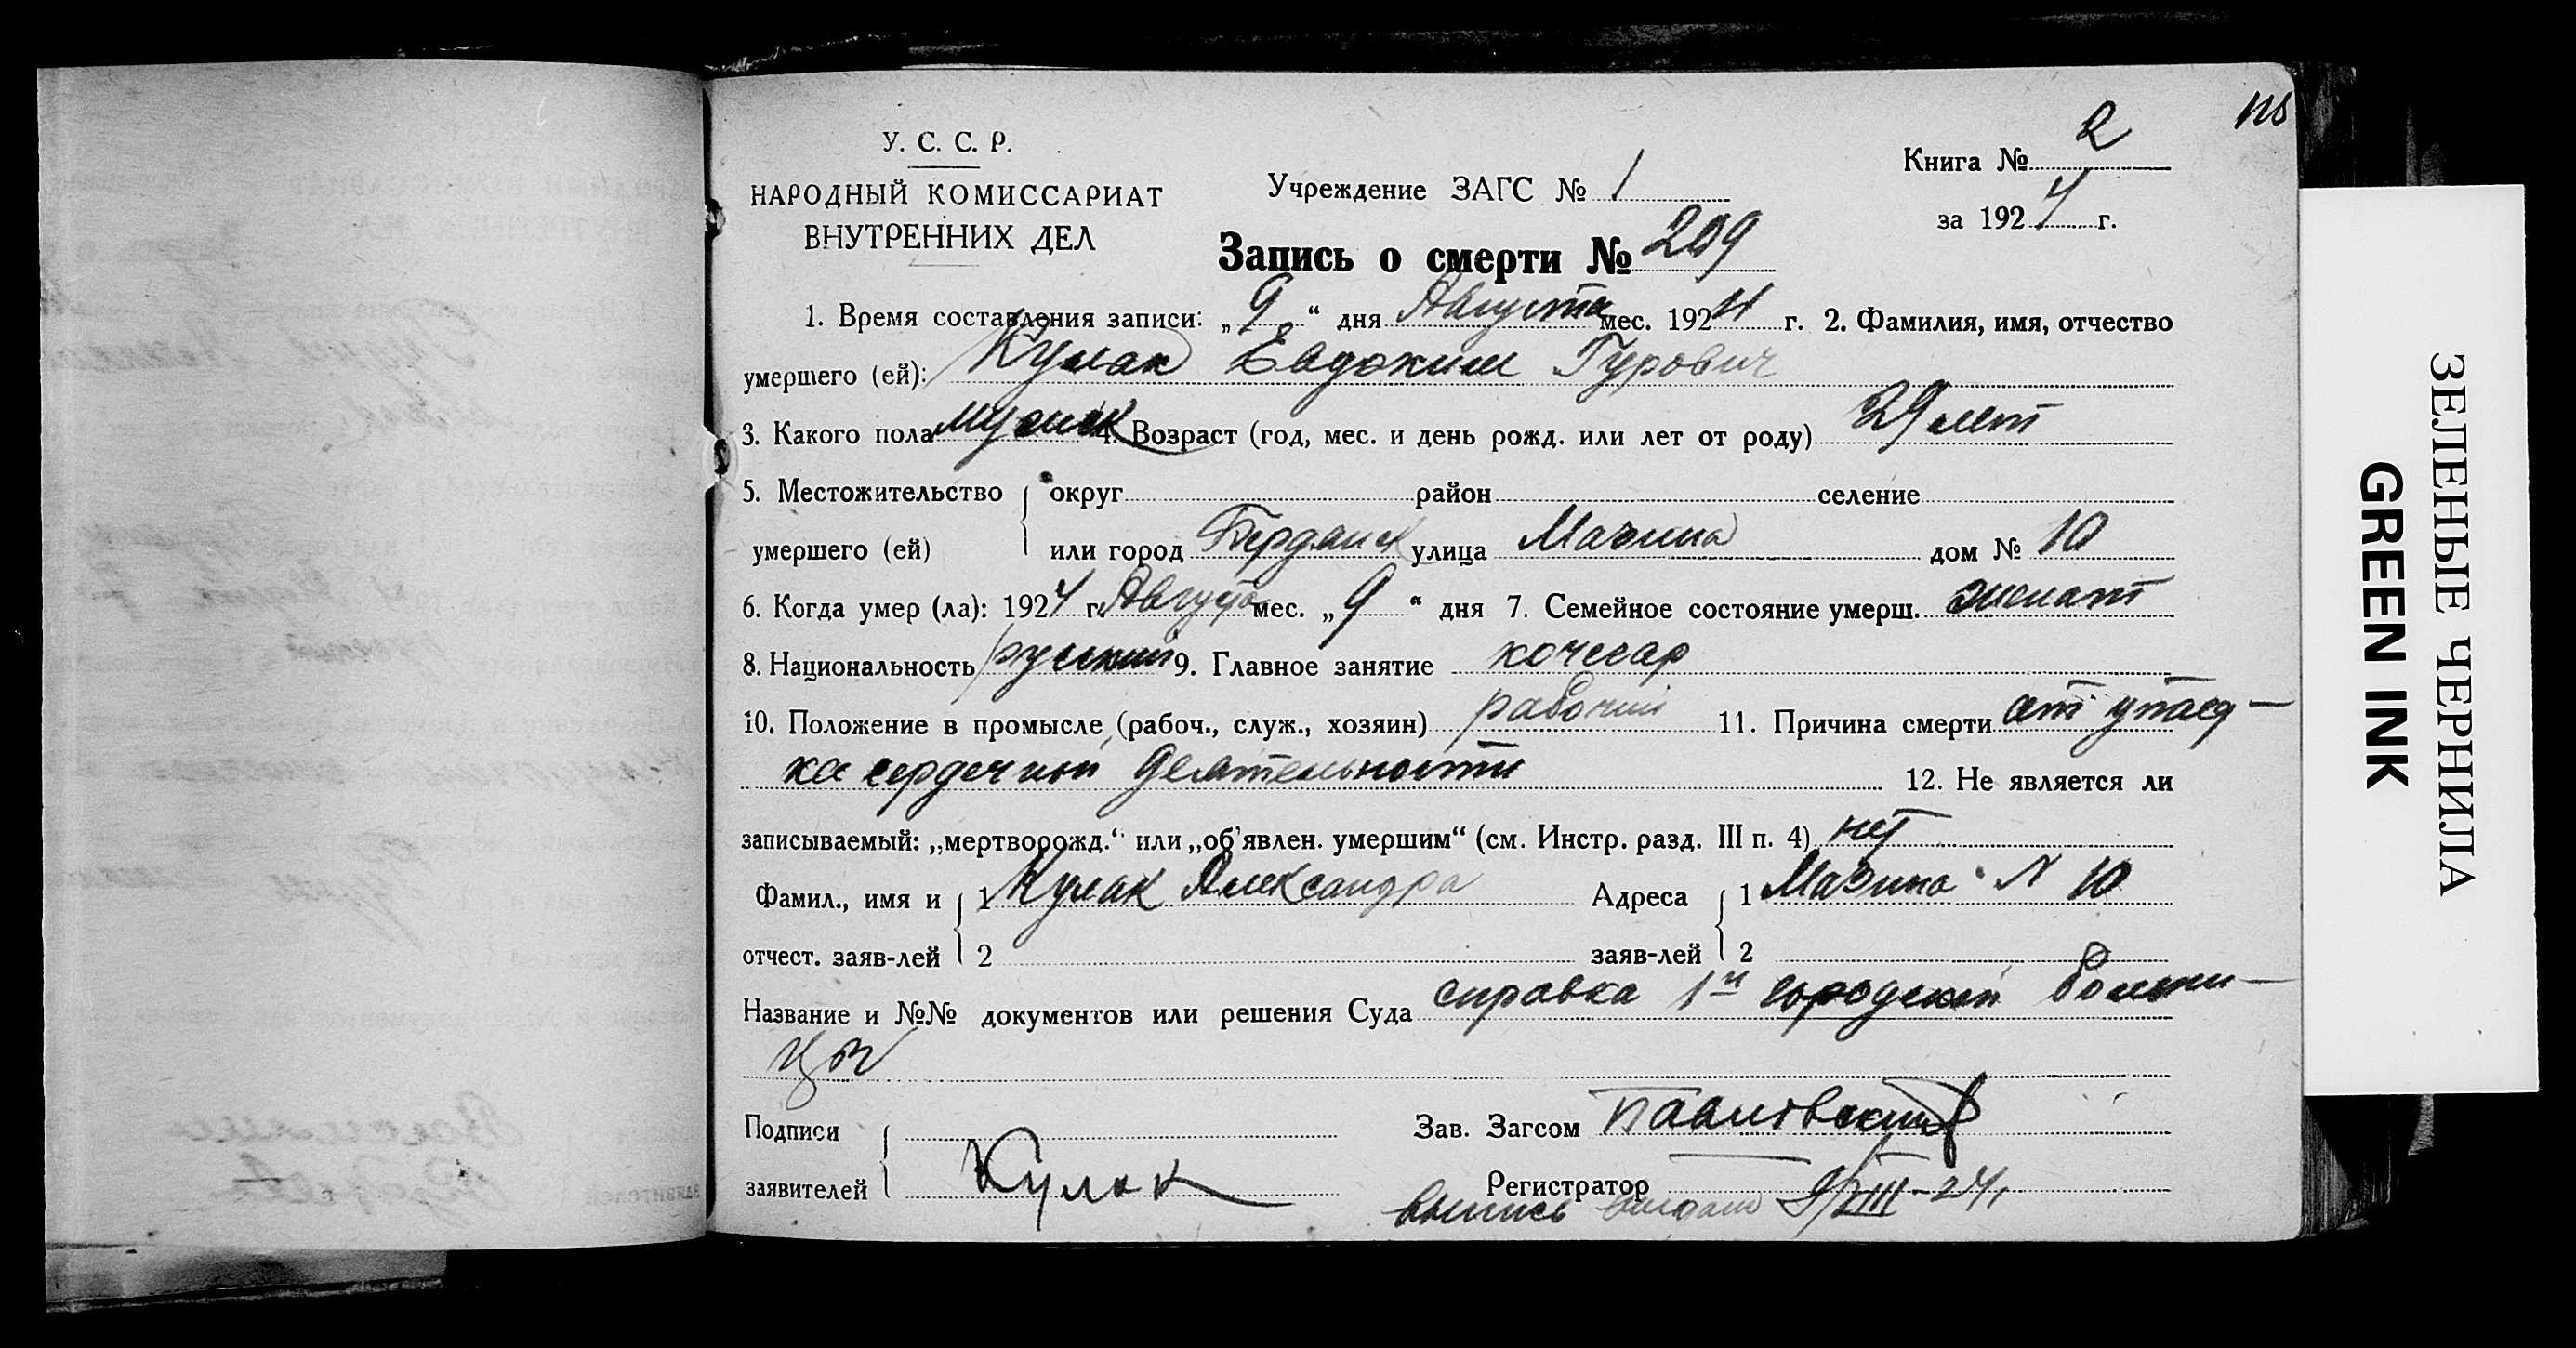 У. С. С. Р.
НАРОДНЫЙ КОМИССАРИАТ
ВНУТРЕННИХ ДЕЛ
Учреждение ЗАГС № 1
Книга № 2
за 1924 г.
Запись о смерти № 209
1. Время составления записи: „9“ дня Августа мес. 1924 г. 2. Фамилия, имя, отчество
умершего (ей): Кулак Евдоким Гурович
3. Какого пола мужск 4. Возраст (год, мес. и день рожд. или лет от роду) 29 лет
5. Местожительство округ район селение
умершего (ей) или город Бердянск улица Мазина дом № 10
6. Когда умер (ла): 1924 г. Августа мес. „9“ дня 7. Семейное состояние умерш. женат
8. Национальность русский 9. Главное занятие кочегар
10. Положение в промысле (рабоч., служ., хозяин) рабочий 11. Причина смерти от упад-
ка сердечной деятельности 12. Не является ли
записываемый: „мертворожд.“ или „об’явлен. умершим“ (см. Инстр. разд. III п. 4) нет
Фамил., имя и 1 Кулак Александра Адреса 1 Мазина N 10
отчест. заяв-лей 2 заяв-лей 2
Название и №№ документов или решения Суда справка 1й городской больни-
цы
Подписи Зав. Загсом Павловский
заявителей Кулак Регистратор
выпись выдана 9/VIII-24
ЗЕЛЕНЫЕ ЧЕРНИЛА
GREEN INK